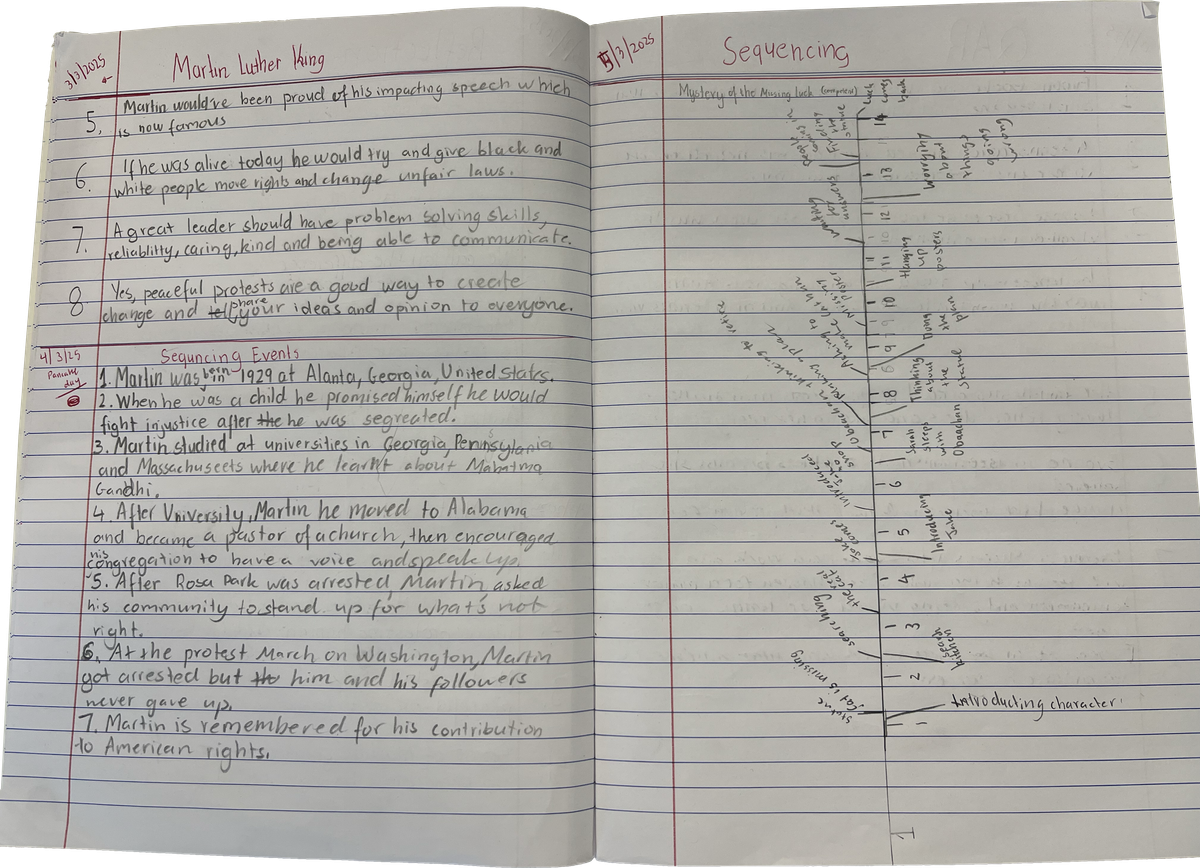 3/3/2025
Martin Luther King
5. Martin would've been proud of his impacting speech which
is now famous
6. If he was alive today he would try and give black and
white people more rights and change unfair laws.
7. A great leader should have problem solving skills,
reliablitly, caring, kind and being able to communicate.
8. Yes, peaceful protests are a good way to create
change and your ideas and opinion to everyone.
4/3/25
Pancake day
Sequncing Events
1. Martin was born in 1929 at Alanta, Georgia, United States.
2. When he was a child he promised himself he would
fight injustice after the he was segreated.
3. Martin studied at universities in Georgia, Pennsylania
and Massachuseets where he learnt about Mahatma
Gandhi.
4. After University, Martin he moved to Alabama
and became a pastor of a church, then encouraged
his congregation to have a voice and speak up.
5. After Rosa Park was arrested, Martin asked
his community to stand up for what's not
right.
6. At the protest March on Washington, Martin
got arrested but him and his followers
never gave up.
7. Martin is remembered for his contribution
to American rights.
5/3/2025
Sequencing
Mystery of the Missing Luck
Luck
comes
back
people coming in
waiting for
customers
Worrying
about
things
going
wrong
Hanging
up
posters
Asking to
make
poster
Doing
the
plan
thinking to retire
Obaachan
plan
Thinking
about
the
statue
Sarah
sleeps
with
Obaachan
Introduced
Introducing
Juke
searching
the cat
search
kitchen
statue
cat is missing
Introducting character
1
2
3
4
5
6
7
8
9
10
11
12
13
14
1